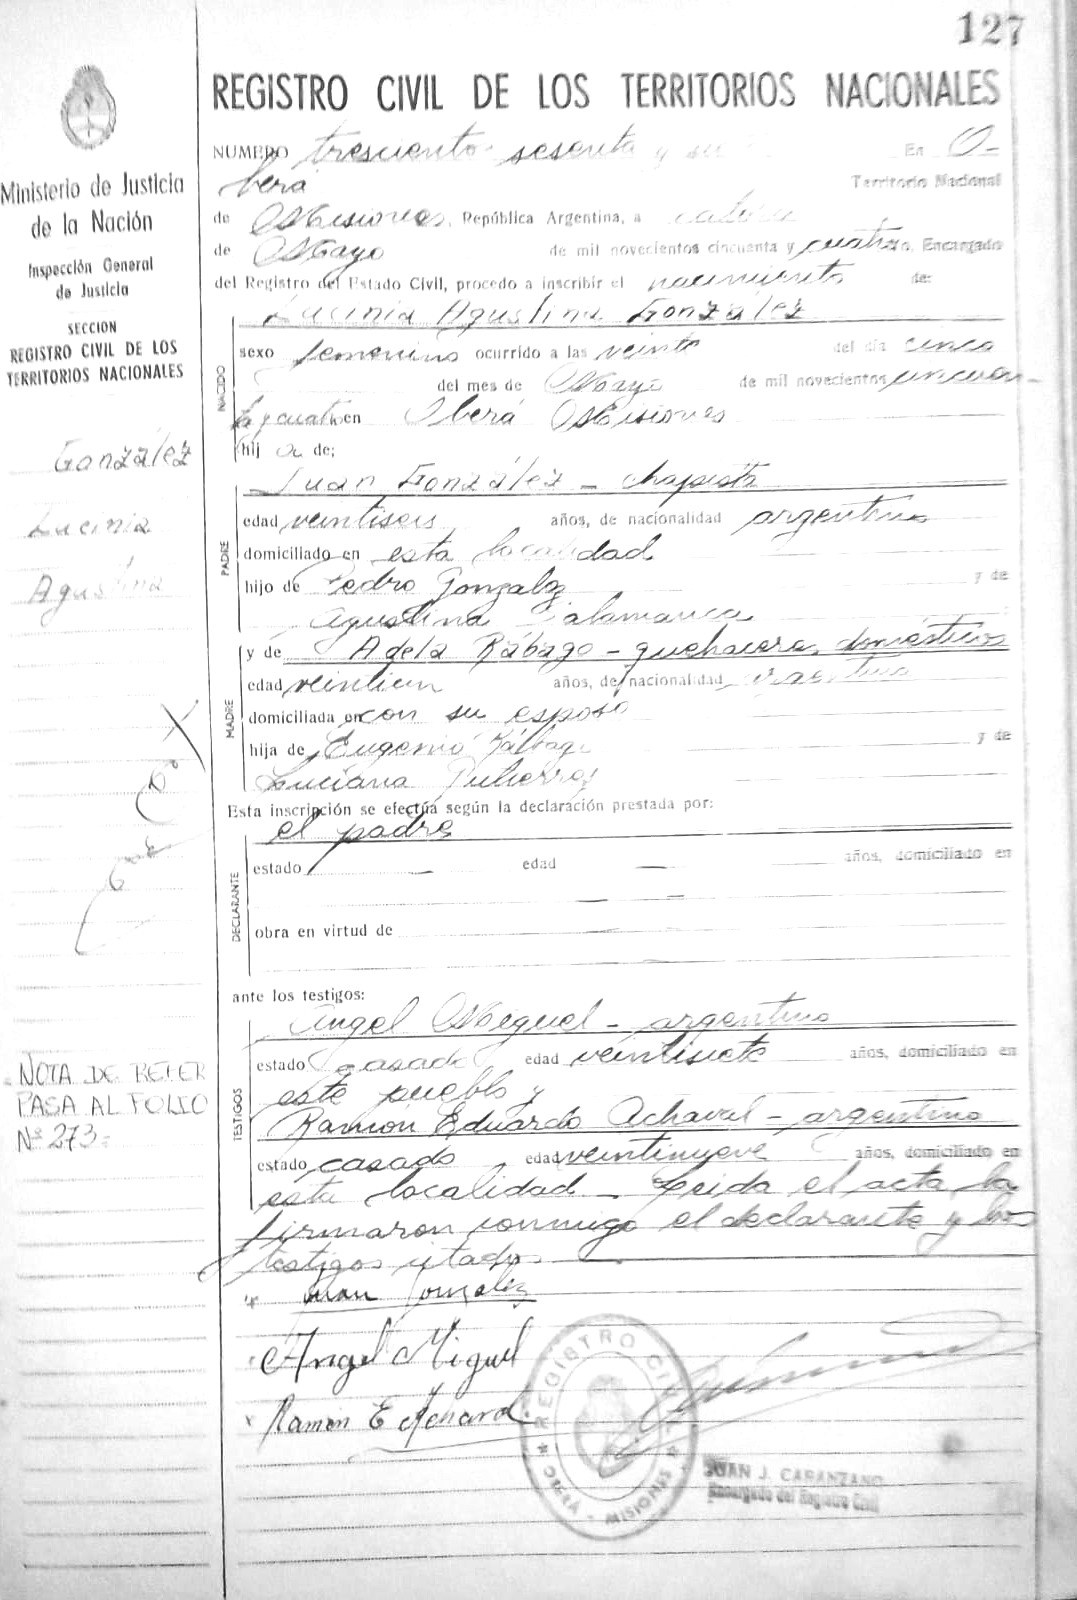 127
REGISTRO CIVIL DE LOS TERRITORIOS NACIONALES
Ministerio de Justicia
de la Nación
Inspección General
de Justicia
SECCION
REGISTRO CIVIL DE LOS
TERRITORIOS NACIONALES
González
Lucinia
Agustina
NOTA DE REFER
PASA AL FOLIO
Nº 273
NUMERO trescientos sesenta y En O-
berá Territorio Nacional
de Misiones, República Argentina, a catorce
de Mayo de mil novecientos cincuenta y cuatro, Encargado
del Registro del Estado Civil, procedo a inscribir el nacimiento de:
NACIDO
Lucinia Agustina González
sexo femenino ocurrido a las veinte del día cinco
del mes de Mayo de mil novecientos cincuen-
ta y cuatro en Oberá Misiones
hij a de;
PADRE
Juan González - chapista
edad veintiseis años, de nacionalidad argentino
domiciliado en esta localidad
hijo de Pedro Gonzalez y de
Agustina Salamanca
MADRE
y de Adela Rábago - quehaceres domésticos
edad años, de nacionalidad argentina
domiciliada en con su esposo
hija de Eugenio Rábago y de
Luciana
Esta inscripción se efectúa según la declaración prestada por:
DECLARANTE
el padre
estado — edad — años, domiciliado en
obra en virtud de
ante los testigos:
TESTIGOS
Angel Miguel - argentino
estado casado edad veintisiete años, domiciliado en
este pueblo y
Ramón Eduardo Achaval - argentino
estado casado edad veintinueve años, domiciliado en
esta localidad - Leida el acta la
firmaron conmigo el declarante y los
testigos citados
Juan Gonzalez
Angel Miguel
Ramon E Achaval
REGISTRO CIVIL
OBERÁ - MISIONES
JUAN J. CARANZANO
Encargado del Registro Civil